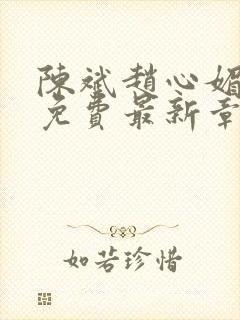 陳斌趙心媚
免費最新章
如若珍惜